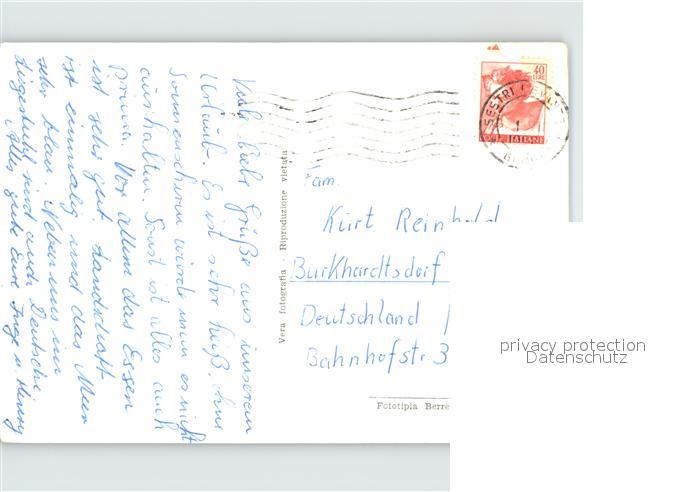 Viele liebe Grüße aus unserem
Urlaub. Es ist sehr heiß, ohne
Sonnenschirm würde man es nicht
aushalten. Sonst ist alles auch
Prima. Vor allem das Essen
ist sehr gut. Landschaft
ist einmalig und das Meer
sehr blau. Neben uns im
Liegestuhl sind auch Deutsche.
Alles gute Eure Inge u. Henry
Vera fotografia - Riproduzione vietata
40
LIRE
SESTRI LEVANTE
ITALIANE
Fam.
Kurt Reinhold
Burkhardtsdorf
Deutschland
Bahnhofstr. 3
Fototipia Berre
privacy protection
Datenschutz